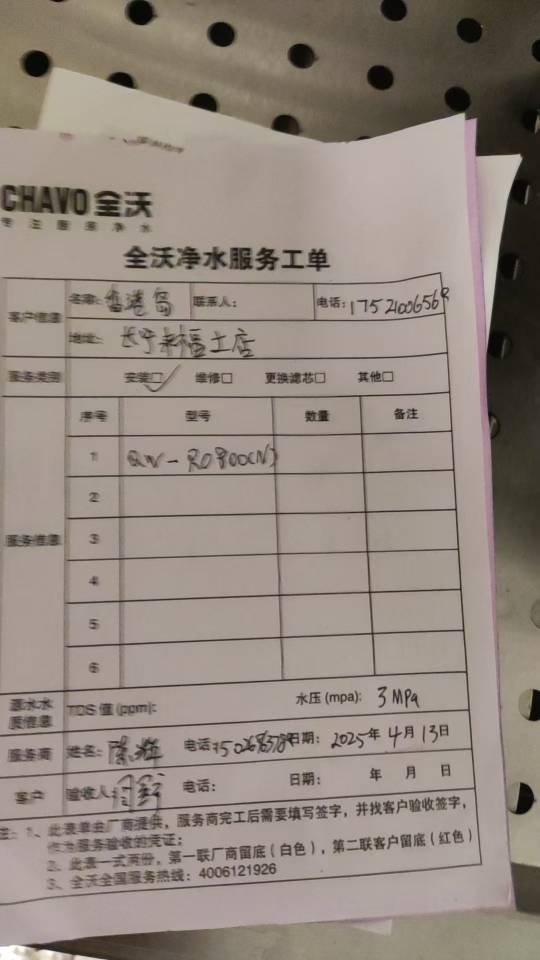 CHAVO 全沃
专注商用净水
全沃净水服务工单
客户信息 名称: 香港岛 联系人: 电话:
地址: 长宁来福士店
服务类别 安装☑ 维修□ 更换滤芯□ 其他□
服务信息 序号 型号 数量 备注
1 QW-RO800(N)
2
3
4
5
6
源水水质信息 TDS 值 (ppm): 水压 (mpa): 3 MPa
服务商 姓名: 电话: 日期: 2025年 4月 13日
客户 验收人: 电话: 日期: 年 月 日
注: 1、此表单由厂商提供，服务商完工后需要填写签字，并找客户验收签字，
作为服务验收的凭证;
2、此表一式两份，第一联厂商留底 (白色)，第二联客户留底 (红色)
3、全沃全国服务热线: 4006121926